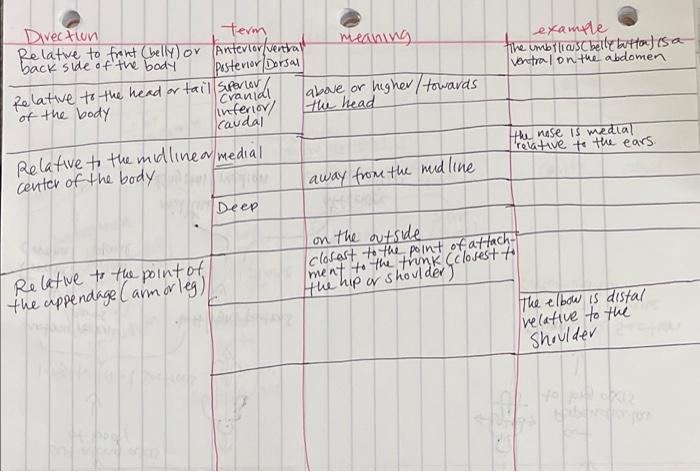 Direction term meaning example
Relative to front (belly) or
back side of the body
Anterior/ventral
Posterior/Dorsal
The umbilicus (belly button) is a
ventral on the abdomen
Relative to the head or tail
of the body
Superior/
cranial
inferior/
caudal
above or higher/towards
the head
the nose is medial
relative to the ears.
Relative to the midline or
center of the body
medial
away from the midline
Deep
on the outside
closest to the point of attach-
ment to the trunk (closest to
the hip or shoulder)
Relative to the point of
the appendage (arm or leg)
The elbow is distal
relative to the
shoulder